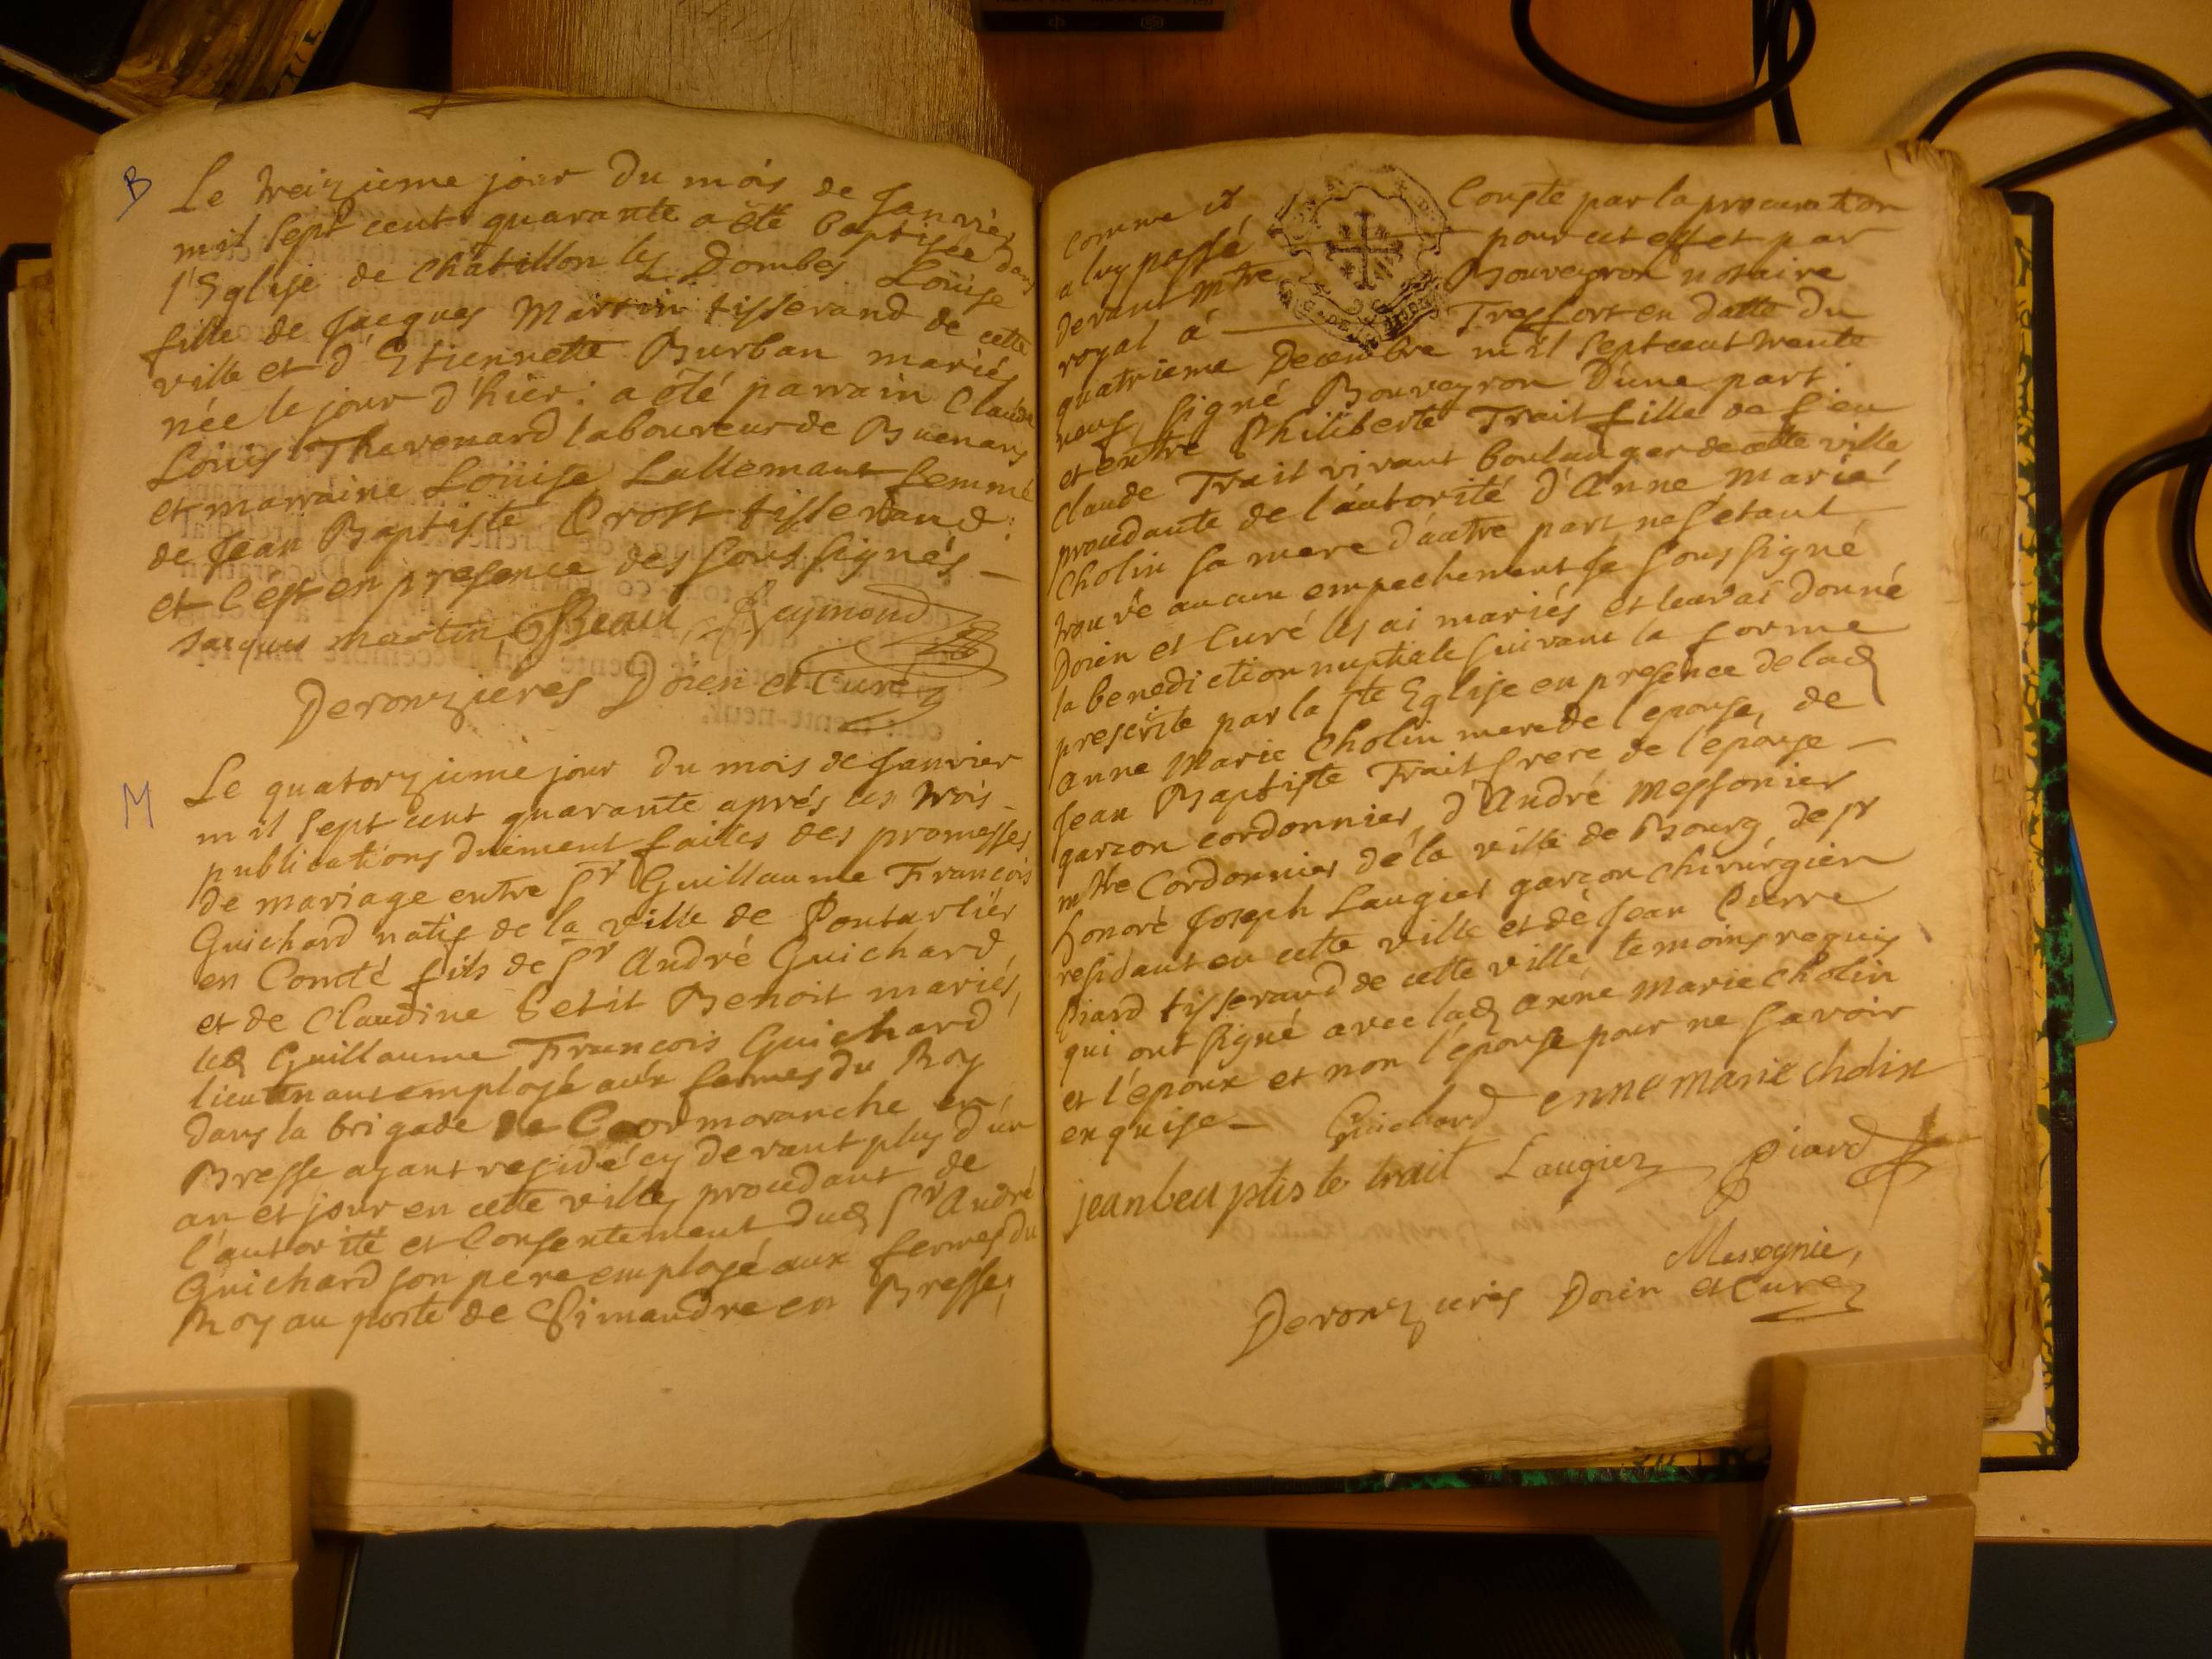 B
Le treizieme jour du mois de Janvier
mil sept cent quarante a été baptisée dans
l'Eglise de Châtillon les Dombes Loüise
fille de Jacques Martin tisserand de cette
ville et d'Etiennette Burban mariés
née le jour d'hier : a été parrain Claude
Loüis Thevenard laboureur de Buenans
et marraine Loüise Lallemant femme
de Jean Baptiste Prost tisserand :
et c'est en presence des soussignés —
Jacques martin Beau Reymond
Deronzieres Doien et Curé
M
Le quatorzieme jour du mois de Janvier
mil sept cent quarante aprés les trois
publications duëment faites des promesses
de mariage entre Sr Guillaume François
Guichard natif de la ville de Pontarlier
en Comté fils de Sr André Guichard
et de Claudine Petit Benoit mariés,
led Guillaume François Guichard
lieutenant emploié aux fermes du Roy
dans la brigade de Cormoranche en
Bresse ayant residé cy devant plus d'un
an et jour en cette ville, procedant de
l'autorité et consentement dud Sr André
Guichard son pere emploié aux fermes du
Roy au poste de Simandre en Bresse,
comme il conste par la procuration
a luy passé pour cet effet par
devant mtre Bouveyron notaire
royal à Tresfort en datte du
quatrieme Decembre mil sept cent trente
neuf, signé Bouveyron d'une part.
et entre Philiberte Trait fille de feu
Claude Trait vivant boulanger de cette ville
procedante de l'autorité d'Anne Marie
Cholin sa mere d'autre part ne s'etant
trouvé aucun empechement je soussigné
Doien et Curé les ai mariés et leur ai donné
la benediction nuptiale suivant la forme
prescrite par la ste Eglise en presence de lad
anne Marie Cholin mere de l'epouse, de
Jean Baptiste Trait frere de l'epouse —
garçon cordonnier, d'André Messonier
mtre Cordonnier de la ville de Bourg, de sr
honoré Joseph Laugier garçon chirurgien
residant en cette ville et de Jean Pierre
Piard tisserand de cette ville temoins requis
qui ont signé avec lad anne marie Cholin
et l'epoux et non l'epouse pour ne savoir
enquise — Guichard enne marie cholin
jean beuptiste trait Laugier Piard
Deronzieres Doien et Curé